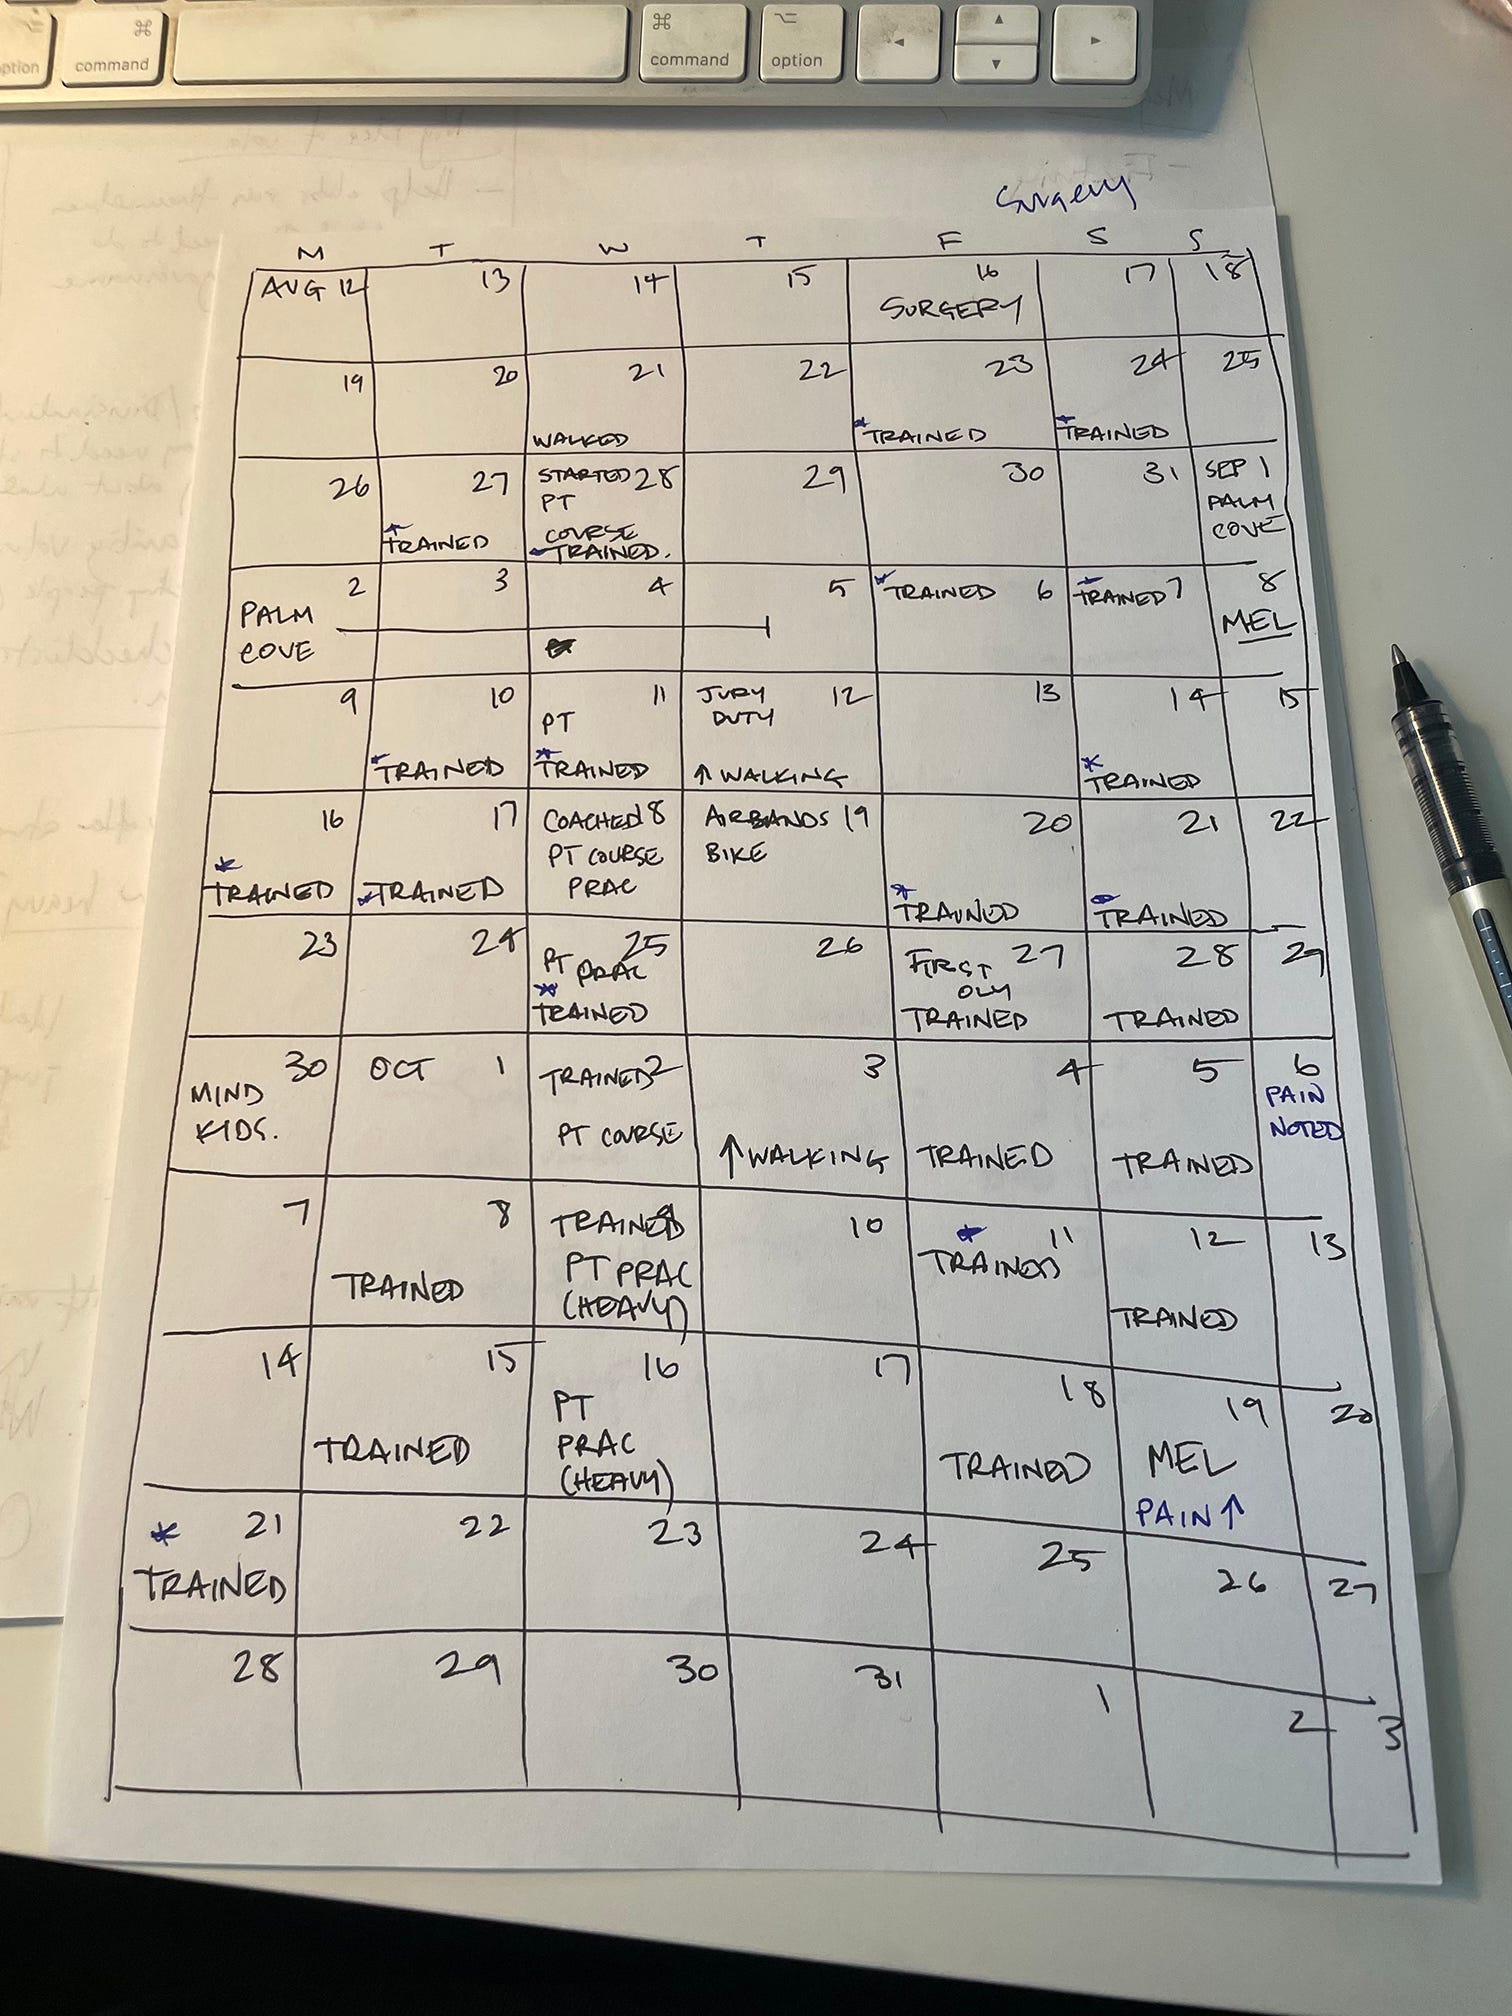 command
command
option
Surgery
M T W T F S S
AUG 12 13 14 15 16 17 18
SURGERY
19 20 21 22 23 24 25
WALKED *TRAINED *TRAINED
26 27 STARTED 28 29 30 31 SEP 1
PT PALM
COURSE COVE
*TRAINED TRAINED.
2 3 4 5 TRAINED 6 TRAINED 7 8
PALM MEL
COVE
9 10 11 JURY 12 13 14 15
PT DUTY
*TRAINED *TRAINED ↑ WALKING *TRAINED
16 17 COACHED 18 AIRBANDS 19 20 21 22
PT COURSE BIKE
PRAC
*TRAINED TRAINED *TRAINED TRAINED
23 24 25 26 FIRST 27 28 29
PT PRAC OLY
*TRAINED TRAINED TRAINED
30 OCT 1 TRAINED 2 3 4 5 6
MIND PAIN
KIDS. PT COURSE NOTED
↑ WALKING TRAINED TRAINED
7 8 TRAINED 9 10 * 11 12 13
TRAINED PT PRAC TRAINED TRAINED
(HEAVY)
14 15 16 17 18 19 20
PT
TRAINED PRAC TRAINED MEL
(HEAVY) PAIN ↑
* 21 22 23 24 25 26 27
TRAINED
28 29 30 31 1 2 3